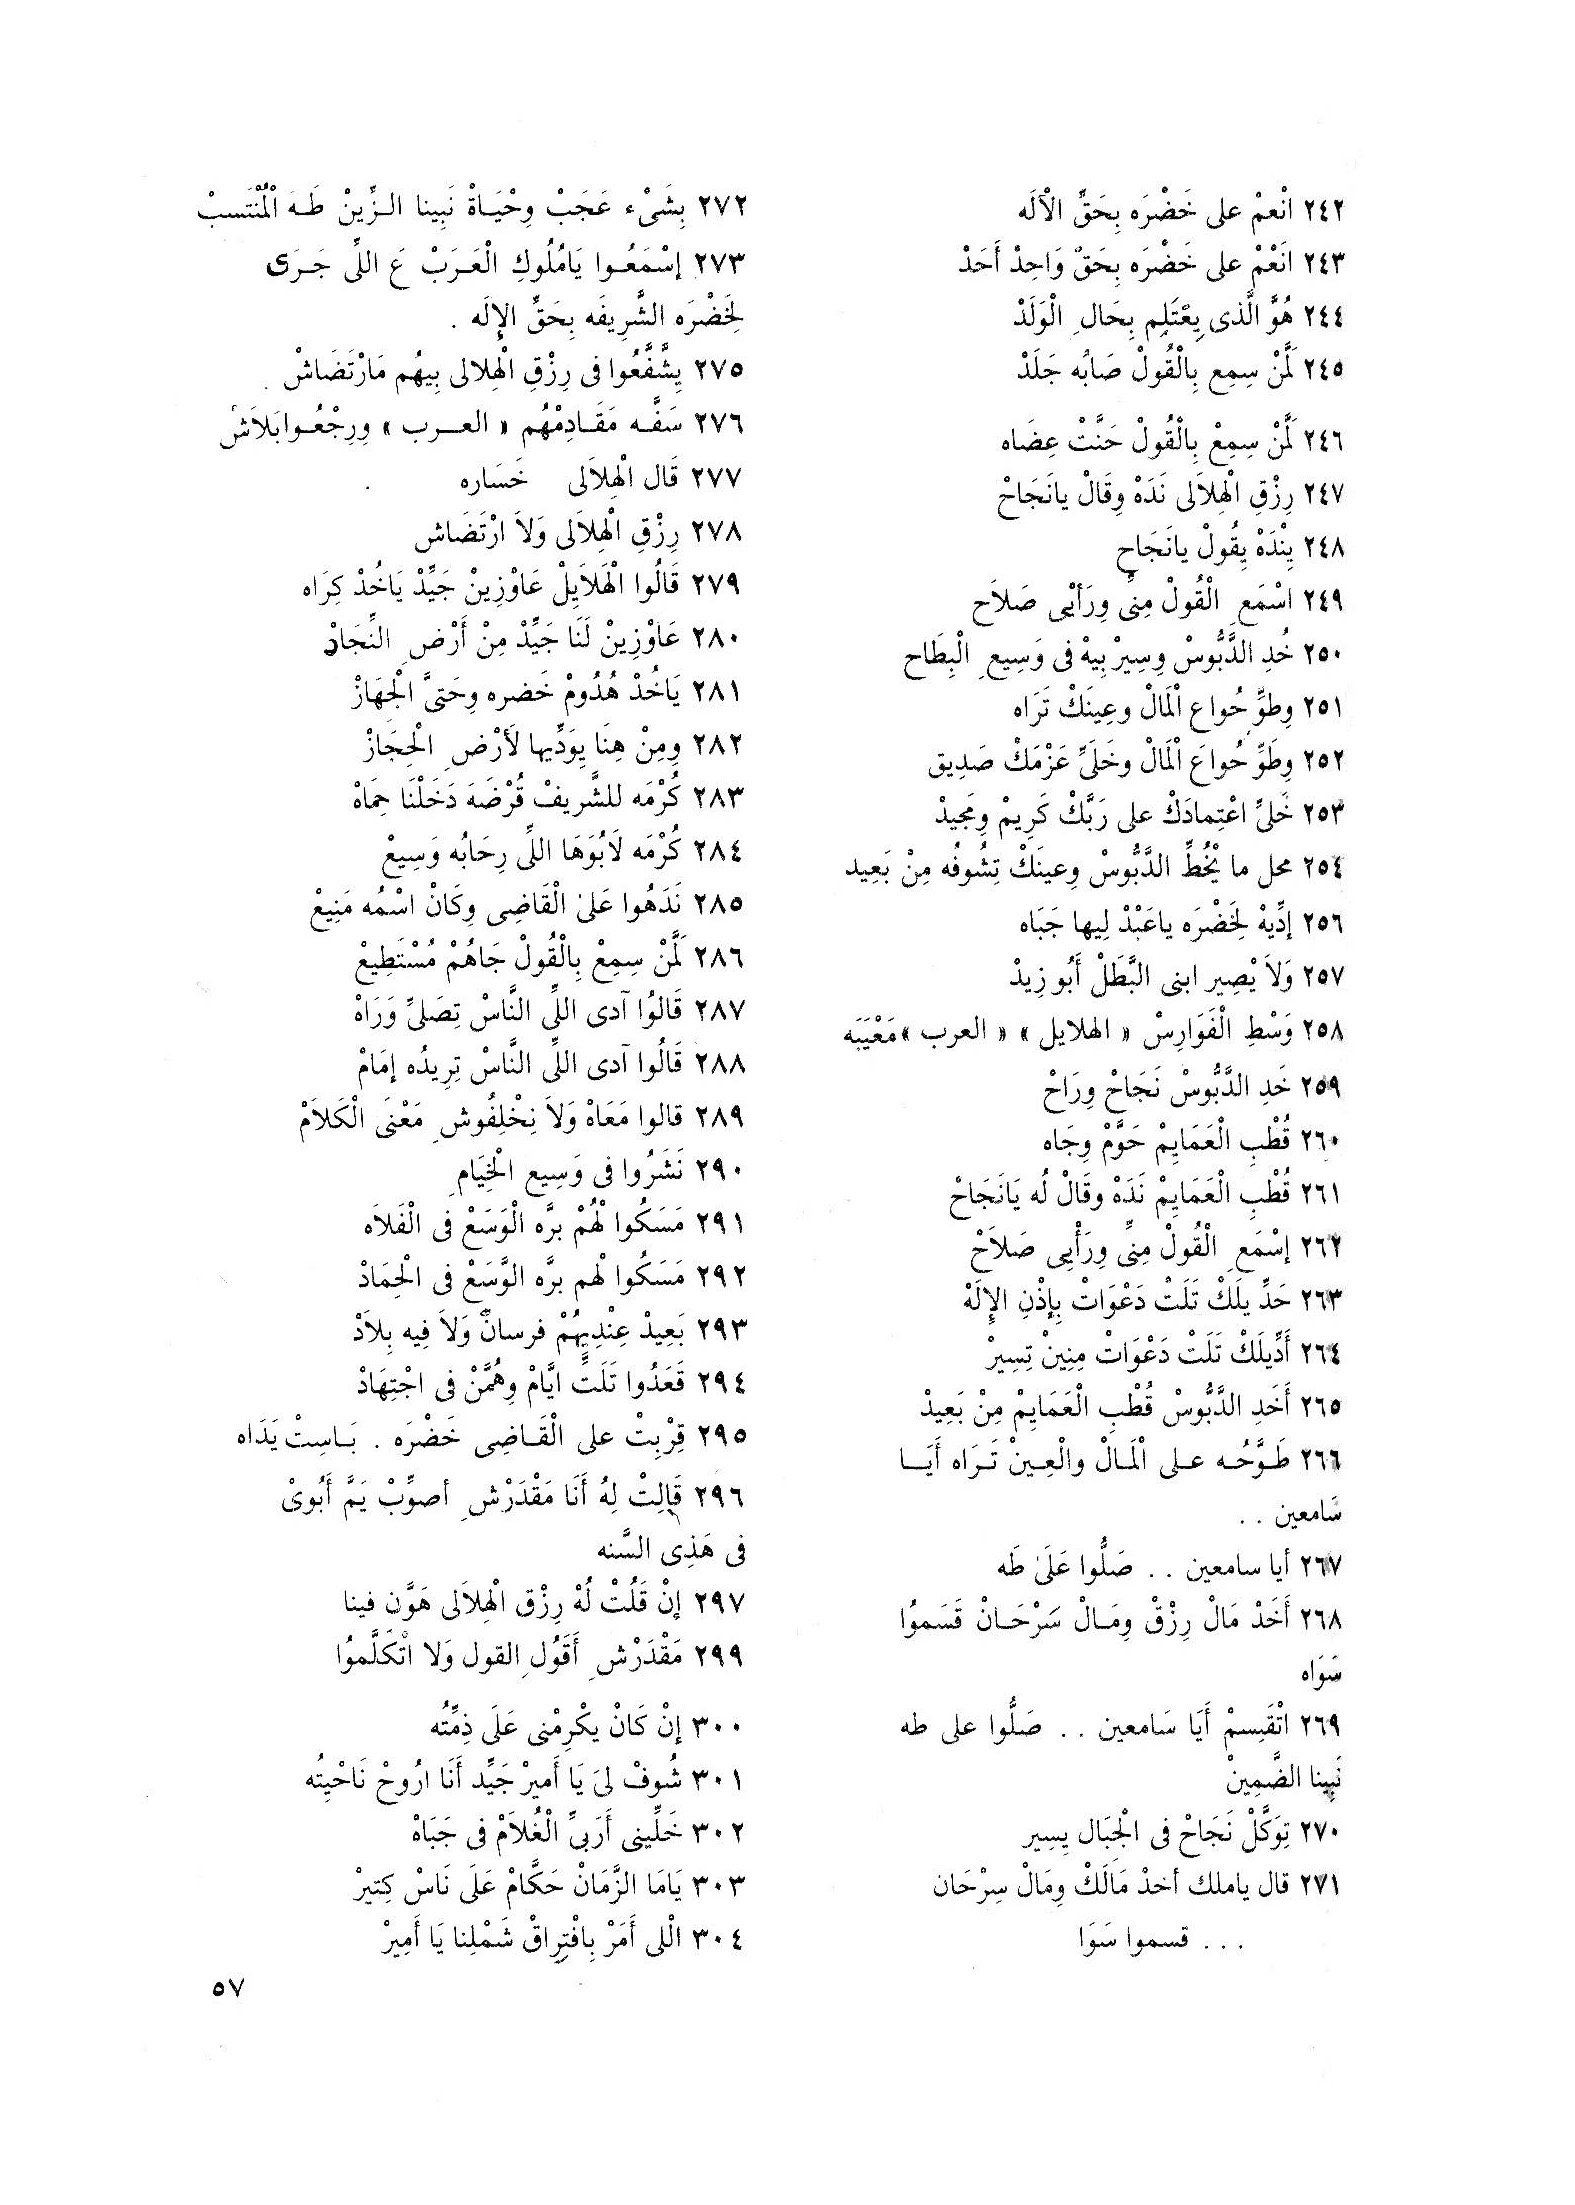 ٢٤٢ انْعمْ على خَضْرَه بِحَقِّ الْالَه
٢٤٣ انَعْمْ على خَضْرَه بِحَقْ وَاحِدْ أَحَدْ
٢٤٤ هُوَّ الَّذى يِعْتَلِم بِحَالِ الْوَلَدْ
٢٤٥ لَمَّنْ سِمِع بِالْقُولْ صَابُه جَلَدْ
٢٤٦ لَمَّنْ سِمِعْ بِالْقُولْ حَنَّتْ عِضَاه
٢٤٧ رِزْقِ الْهِلاَلى نَدَهْ وِقَالْ يانَجَاحْ
٢٤٨ يِنْدَهْ يِقُولْ يانَجَاحِ
٢٤٩ اسْمَعِ الْقُولْ مِنِّى وِرَأْيى صَلاَح
٢٥٠ خُدِ الدَّبُّوسْ وِسِيرْ بِيهْ فى وَسِيعِ الْبِطَاح
٢٥١ وِطوِّحُواع الْمَالْ وعِينَكْ تَرَاه
٢٥٢ وِطَوِّحُواعَ الْمَالْ وخَلىِّ عَزْمَكْ صَدِيق
٢٥٣ خَلىِّ اعْتِمادَكْ على رَبَّكْ كَرِيمْ وِمَجِيدْ
٢٥٤ محل ما يْخُطِّ الدَّبُّوسْ وِعينَكْ تِشُوفُه مِنْ بَعِيد
٢٥٦ إدِّيهْ لِخَضْرَه ياعَبْدْ لِيها جَبَاه
٢٥٧ وَلاَ يْصِير ابنى البَّطَلْ أَبُو زِيدْ
٢٥٨ وَسْطِ الْفَوَارِسْ « الهلايل » « العرب » مَعْيَبَه
٢٥٩ خَدِ الدَّبُّوسْ نَجَاحْ وِرَاحْ
٢٦٠ قُطْبِ الْعَمَايِمْ حَوَّمْ وِجَاه
٢٦١ قُطْبِ الْعَمَايِمْ نَدَهْ وقَالْ لُه يَانَجَاحْ
٢٦٢ إسْمَعِ الْقُولْ مِنِّى وِرَأْيى صَلاَحْ
٢٦٣ حَدِّيلَكْ تَلَتْ دَعْوَاتْ بِإذْنِ الإِلَهْ
٢٦٤ أَدِّيلَكْ تَلَتْ دَعْوَاتْ مِنِينْ تِسِيرْ
٢٦٥ أَخَدِ الدَّبُّوسْ قُطْبِ الْعَمَايِمْ مِنْ بَعِيدْ
٢٦٦ طَوَّحُه على الْمَالْ والْعِينْ تَرَاه أَيَا
سَامعين . .
٢٦٧ أيا سامعين . . صَلُّوا عَلَىٰ طَه
٢٦٨ أَخَدْ مَالْ رِزْقْ وِمَالْ سَرْحَانْ قَسَموُا
سَوَاه
٢٦٩ اتْقَسِمْ أَيَا سَامعين . . صَلُّوا على طه
نَبِينا الضَّمِينْ
٢٧٠ تِوَكَّلْ نَجَاحْ فى الْجِبَال يِسِير
٢٧١ قال ياملك أخدْ مَالَكْ وِمَالْ سِرْحَان
. . . قسموا سَوَا
٢٧٢ بِشَىْء عَجَبْ وِحْيَاةْ نَبِينا الزِّينْ طَهَ الْمُنْتَسبْ
٢٧٣ إسْمَعُوا يَامُلُوكِ الْعَرَبْ عَ اللِّى جَرَى
لِخَضْرَه الشَّرِيفَه بِحَقِّ الإِلَه .
٢٧٥ يِشَّفَّعُوا فى رِزْقِ الْهِلالى بِيهُم مَارْتَضَاشْ .
٢٧٦ سَفَّه مَقَادِمْهُم « العرب » وِرِجْعُوا بَلاَشْ
٢٧٧ قَال الْهِلاَلى خَسَاره .
٢٧٨ رِزْقِ الْهِلاَلى وَلاَ ارْتَضَاش
٢٧٩ قَالُوا الْهَلاَيِلْ عَاوْزِينْ جَيِّدْ يَاخُدْ كِرَاه
٢٨٠ عَاوْزِينْ لَنَا جَيِّدْ مِنْ أَرْضِ النِّجَادْ
٢٨١ يَاخُدْ هُدُومْ خَضره وِحَتىَّ الْجهَازْ
٢٨٢ وِمِنْ هِنَا يِوَدِّيها لأَرْضِ الْحِجَازْ
٢٨٣ كُرْمَه للشَّرِيفْ قُرْضَهَ دَخَلْنَا حِمَاهْ
٢٨٤ كُرْمَه لَابُوَهَا اللِّى رِحَابُه وَسِيعْ
٢٨٥ نَدَهُوا عَلىٰ الْقَاضِى وِكَانْ اسْمُه مَنِيعْ
٢٨٦ لَمَّنْ سِمِعْ بِالْقُولْ جَاهُمْ مُسْتَطِيعْ
٢٨٧ قَالوُا آدى اللِّى النَّاسْ تِصَلىِّ وَرَاهْ
٢٨٨ قَالُوا آدى اللِّى النَّاسْ تِرِيدُه إمَامْ
٢٨٩ قالوا مَعَاهْ وَلاَ نِخْلِفُوشِ مَعْنَى الْكَلاَمْ
٢٩٠ نَشَرُوا فى وَسِيعِ الْخِيَامِ
٢٩١ مَسَكُوا لْهُمْ برَّه الْوَسَعْ فى الْفَلاَه
٢٩٢ مَسَكُوا لْهم برَّه الوَّسَعْ فى الْحِمَادْ
٢٩٣ بَعِيدْ عِنْدِيهُمْ فرسانٌ وَلاَ فِيه بِلاَدْ
٢٩٤ قَعَدُوا تَلَتِّ ايَّامْ وِهُمَّنْ فى اجْتِهَادْ
٢٩٥ قِرْبِتْ على الْقَاضِى خَضْرَه . بَاسِتْ يَدَاه
٢٩٦ قَالِتْ لِهُ أَنَا مَقْدَرْشِ أصوِّبْ يَمَّ أَبُوىْ
فى هَذِى السَّنه
٢٩٧ إنْ قَلُتْ لُهْ رِزْق الْهِلاَلى هَوَّن فينا
٢٩٩ مَقْدَرْشِ أَقَوُلِ القول وَلا اتْكَلَّموُا
٣٠٠ إنْ كَانْ يكْرِمْنى عَلَى ذِمِّتُه
٣٠١ شُوفْ لىَ يَا أَميرْ جَيِّد أَنَا ارُوحْ نَاحْيِتُه
٣٠٢ خَلِّينى أَرَبىِّ الْغُلاَمْ فى جَبَاهْ
٣٠٣ يَامَا الزَّمَانْ حَكَّامْ عَلَى نَاسْ كِتيرْ
٣٠٤ الْلى أَمَرْ بِافْتِرِاقْ شَمْلِنا يَا أَمِيرْ
٥٧